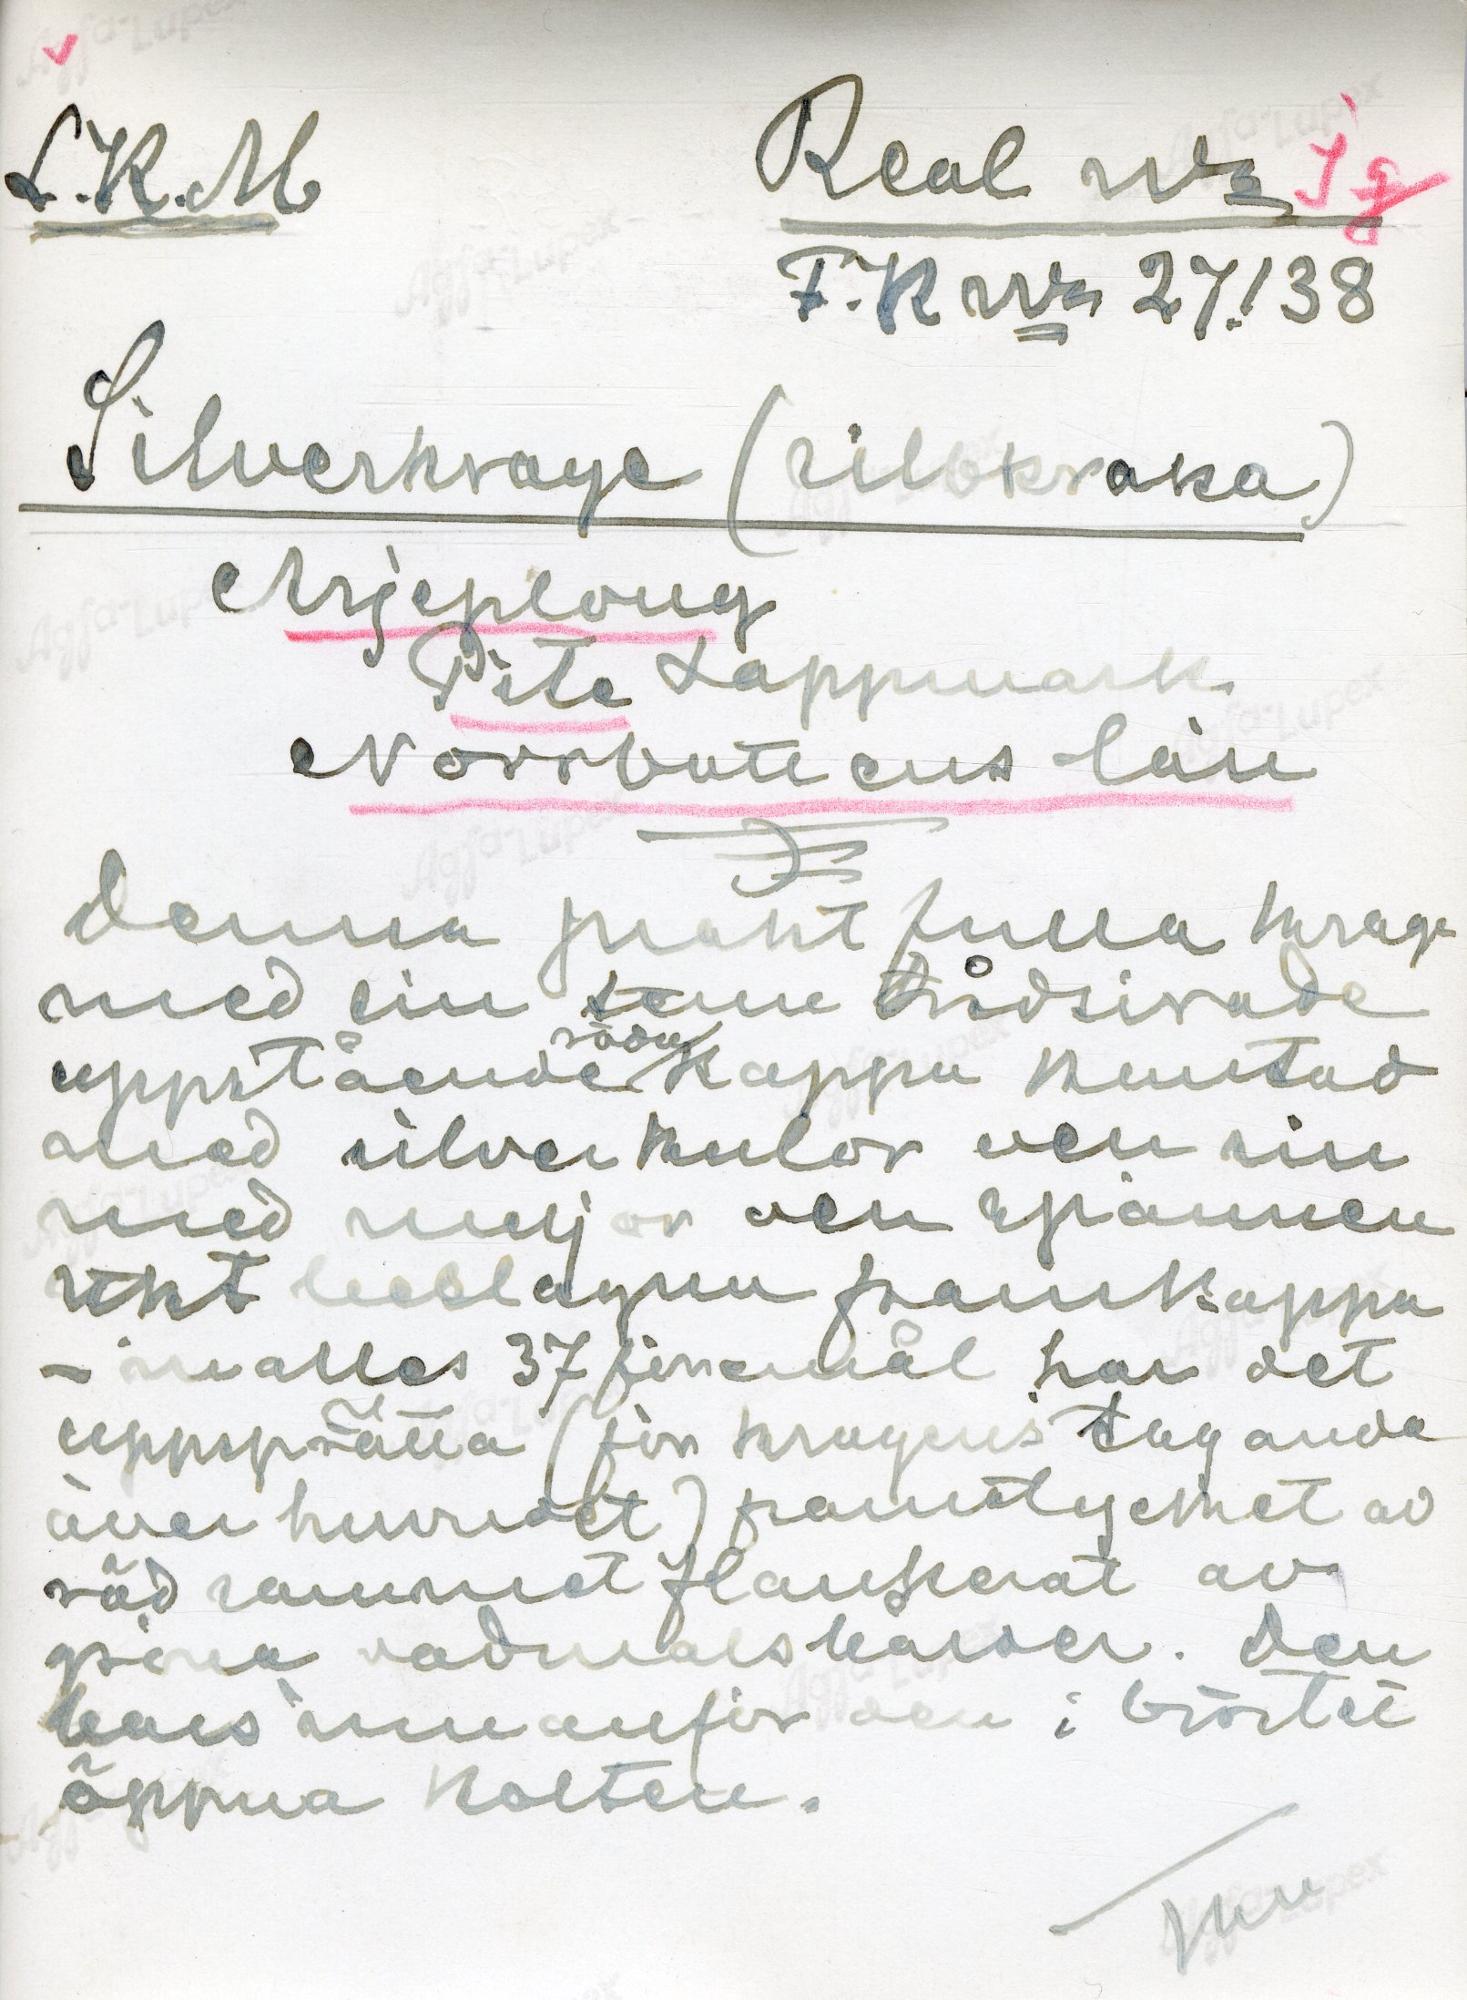 L.K.M
Real nr Ig
F.K nr 27./38
Silverkrage (silbkraka)
Arjeploug
Pite Lappmark
Norrbottens län
Denna praktfulla krage
med sin trådsirade
uppstående röda kappa kantad
med silverkulor och sin
med maljor och spännen
rikt beslagna framkappa
- inalles 37 föremål har det
uppsprätta (för kragens tagande
över huvudet) framstycket av
röd sammet flankerat av
gröna vadmalsbårder. Den
bars innanför den i bröstet
öppna kolten.